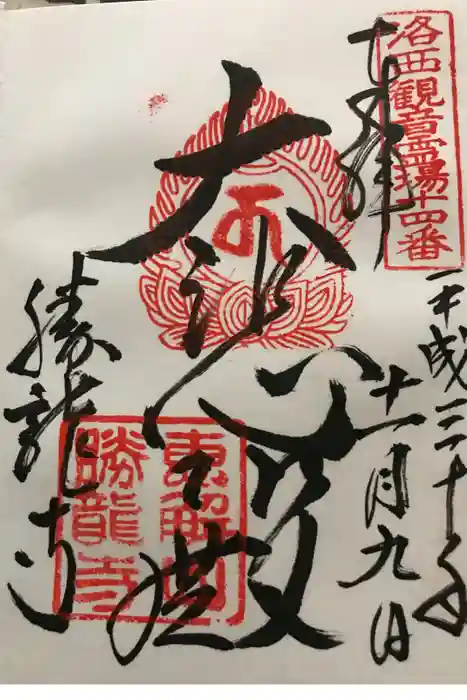 洛西観音霊場十四番
奉拝
平成三十年
十一月九日
大悲殿
勝龍寺
勝龍寺